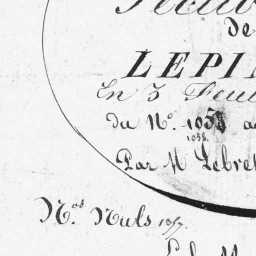 de
LEPI
En 3 Feui
du N.° 1053 a
1038.
Par M Lebre
N.os Nuls 1057.